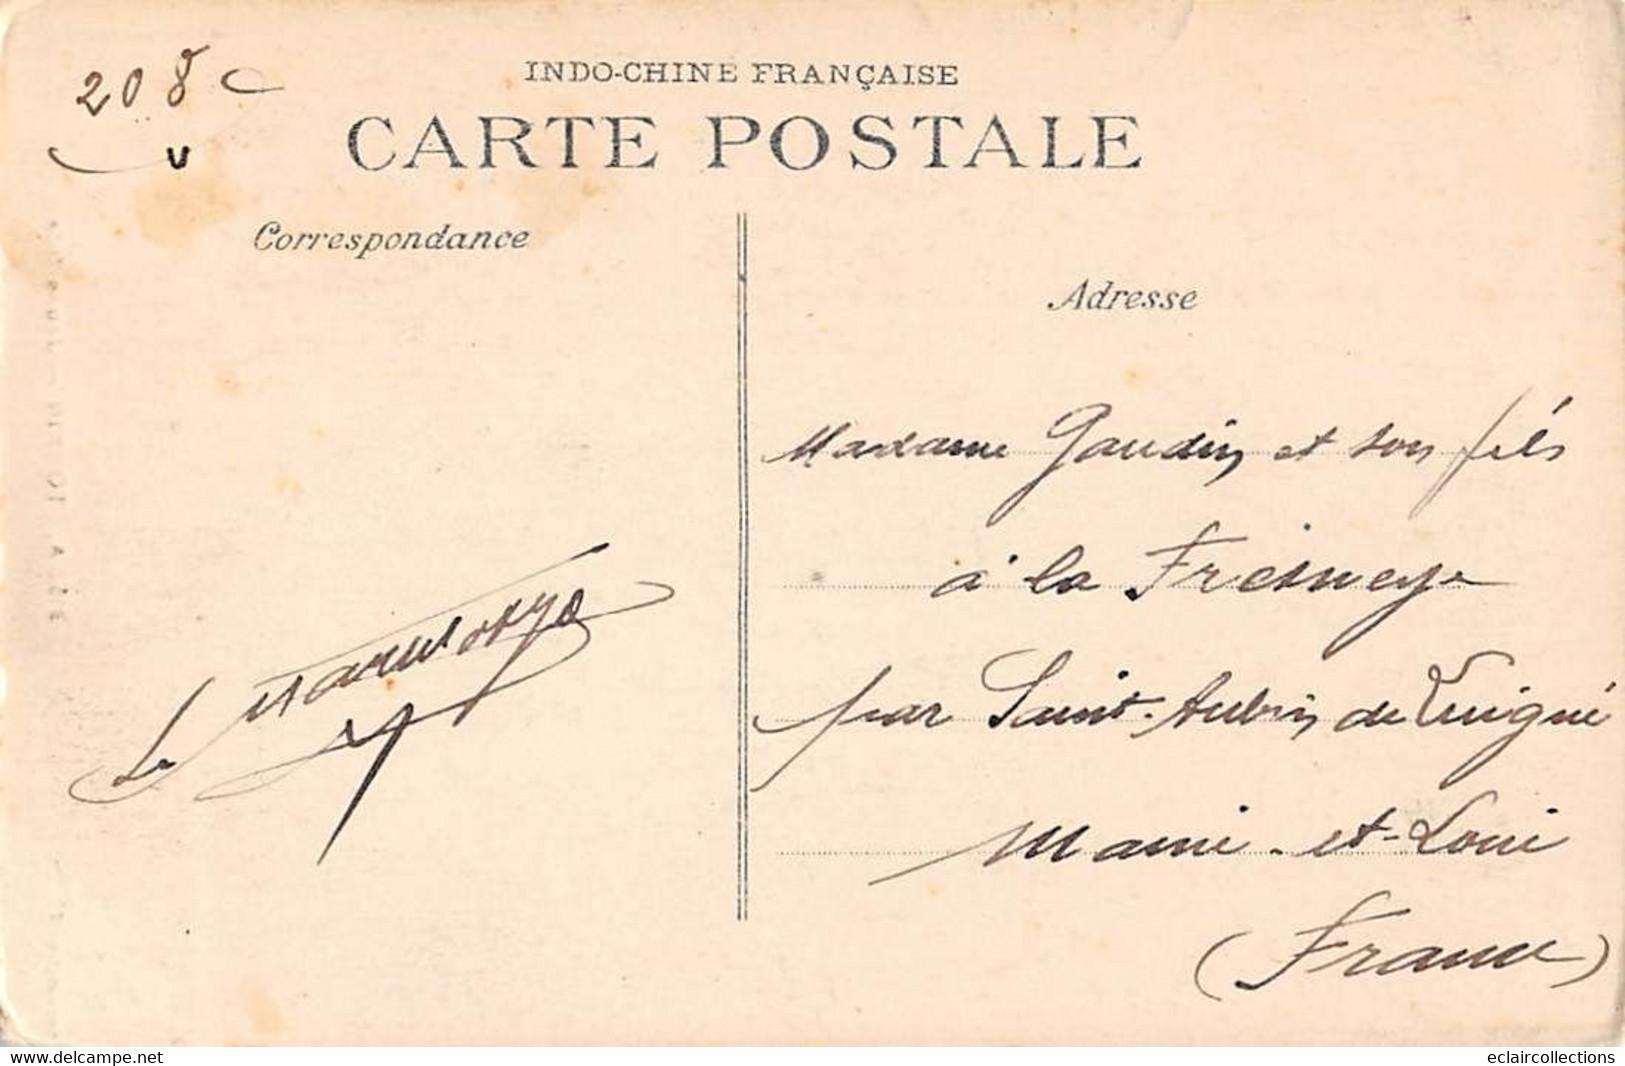 208
INDO-CHINE FRANÇAISE
CARTE POSTALE
Correspondance
Adresse
Madame Gaudin et son fils
à la Fresneye
par Saint-Aubin de Luigné
Maine-et-Loire
(France)
www.delcampe.net
eclaircollections